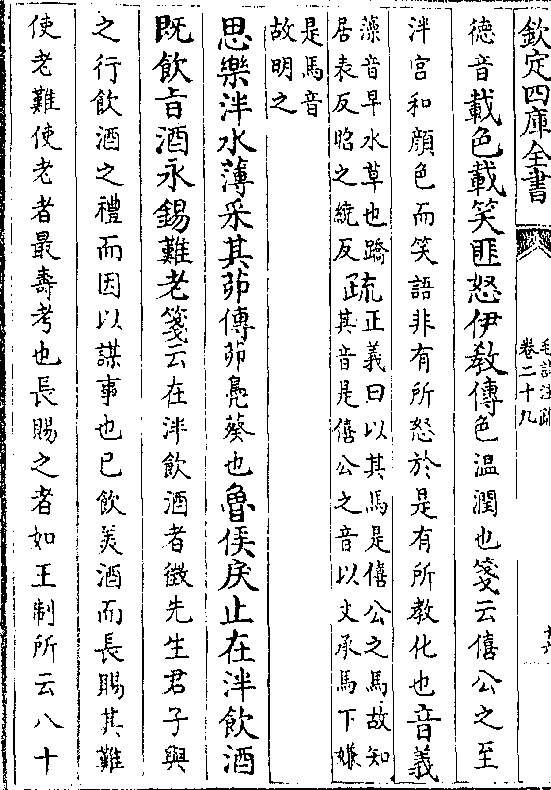 欽定四庫全書
毛詩注疏
卷二十九
德音載色載笑匪怒伊教傳色溫潤也箋云僖公之至
泮宮和顔色而笑語非有所怒於是有所教化也音義
藻音早水草也蹻
居表反昭之繞反
疏
正義曰以其馬是僖公之馬故知
其音是僖公之音以文承馬下嫌
是馬音
故明之
思樂泮水薄采其茆傳茆鳬葵也魯侯戾止在泮飲酒
既飲旨酒永錫難老箋云在泮飲酒者徵先生君子與
之行飲酒之禮而因以謀事也已飲美酒而長賜其難
使老難使老者最壽考也長賜之者如王制所云八十